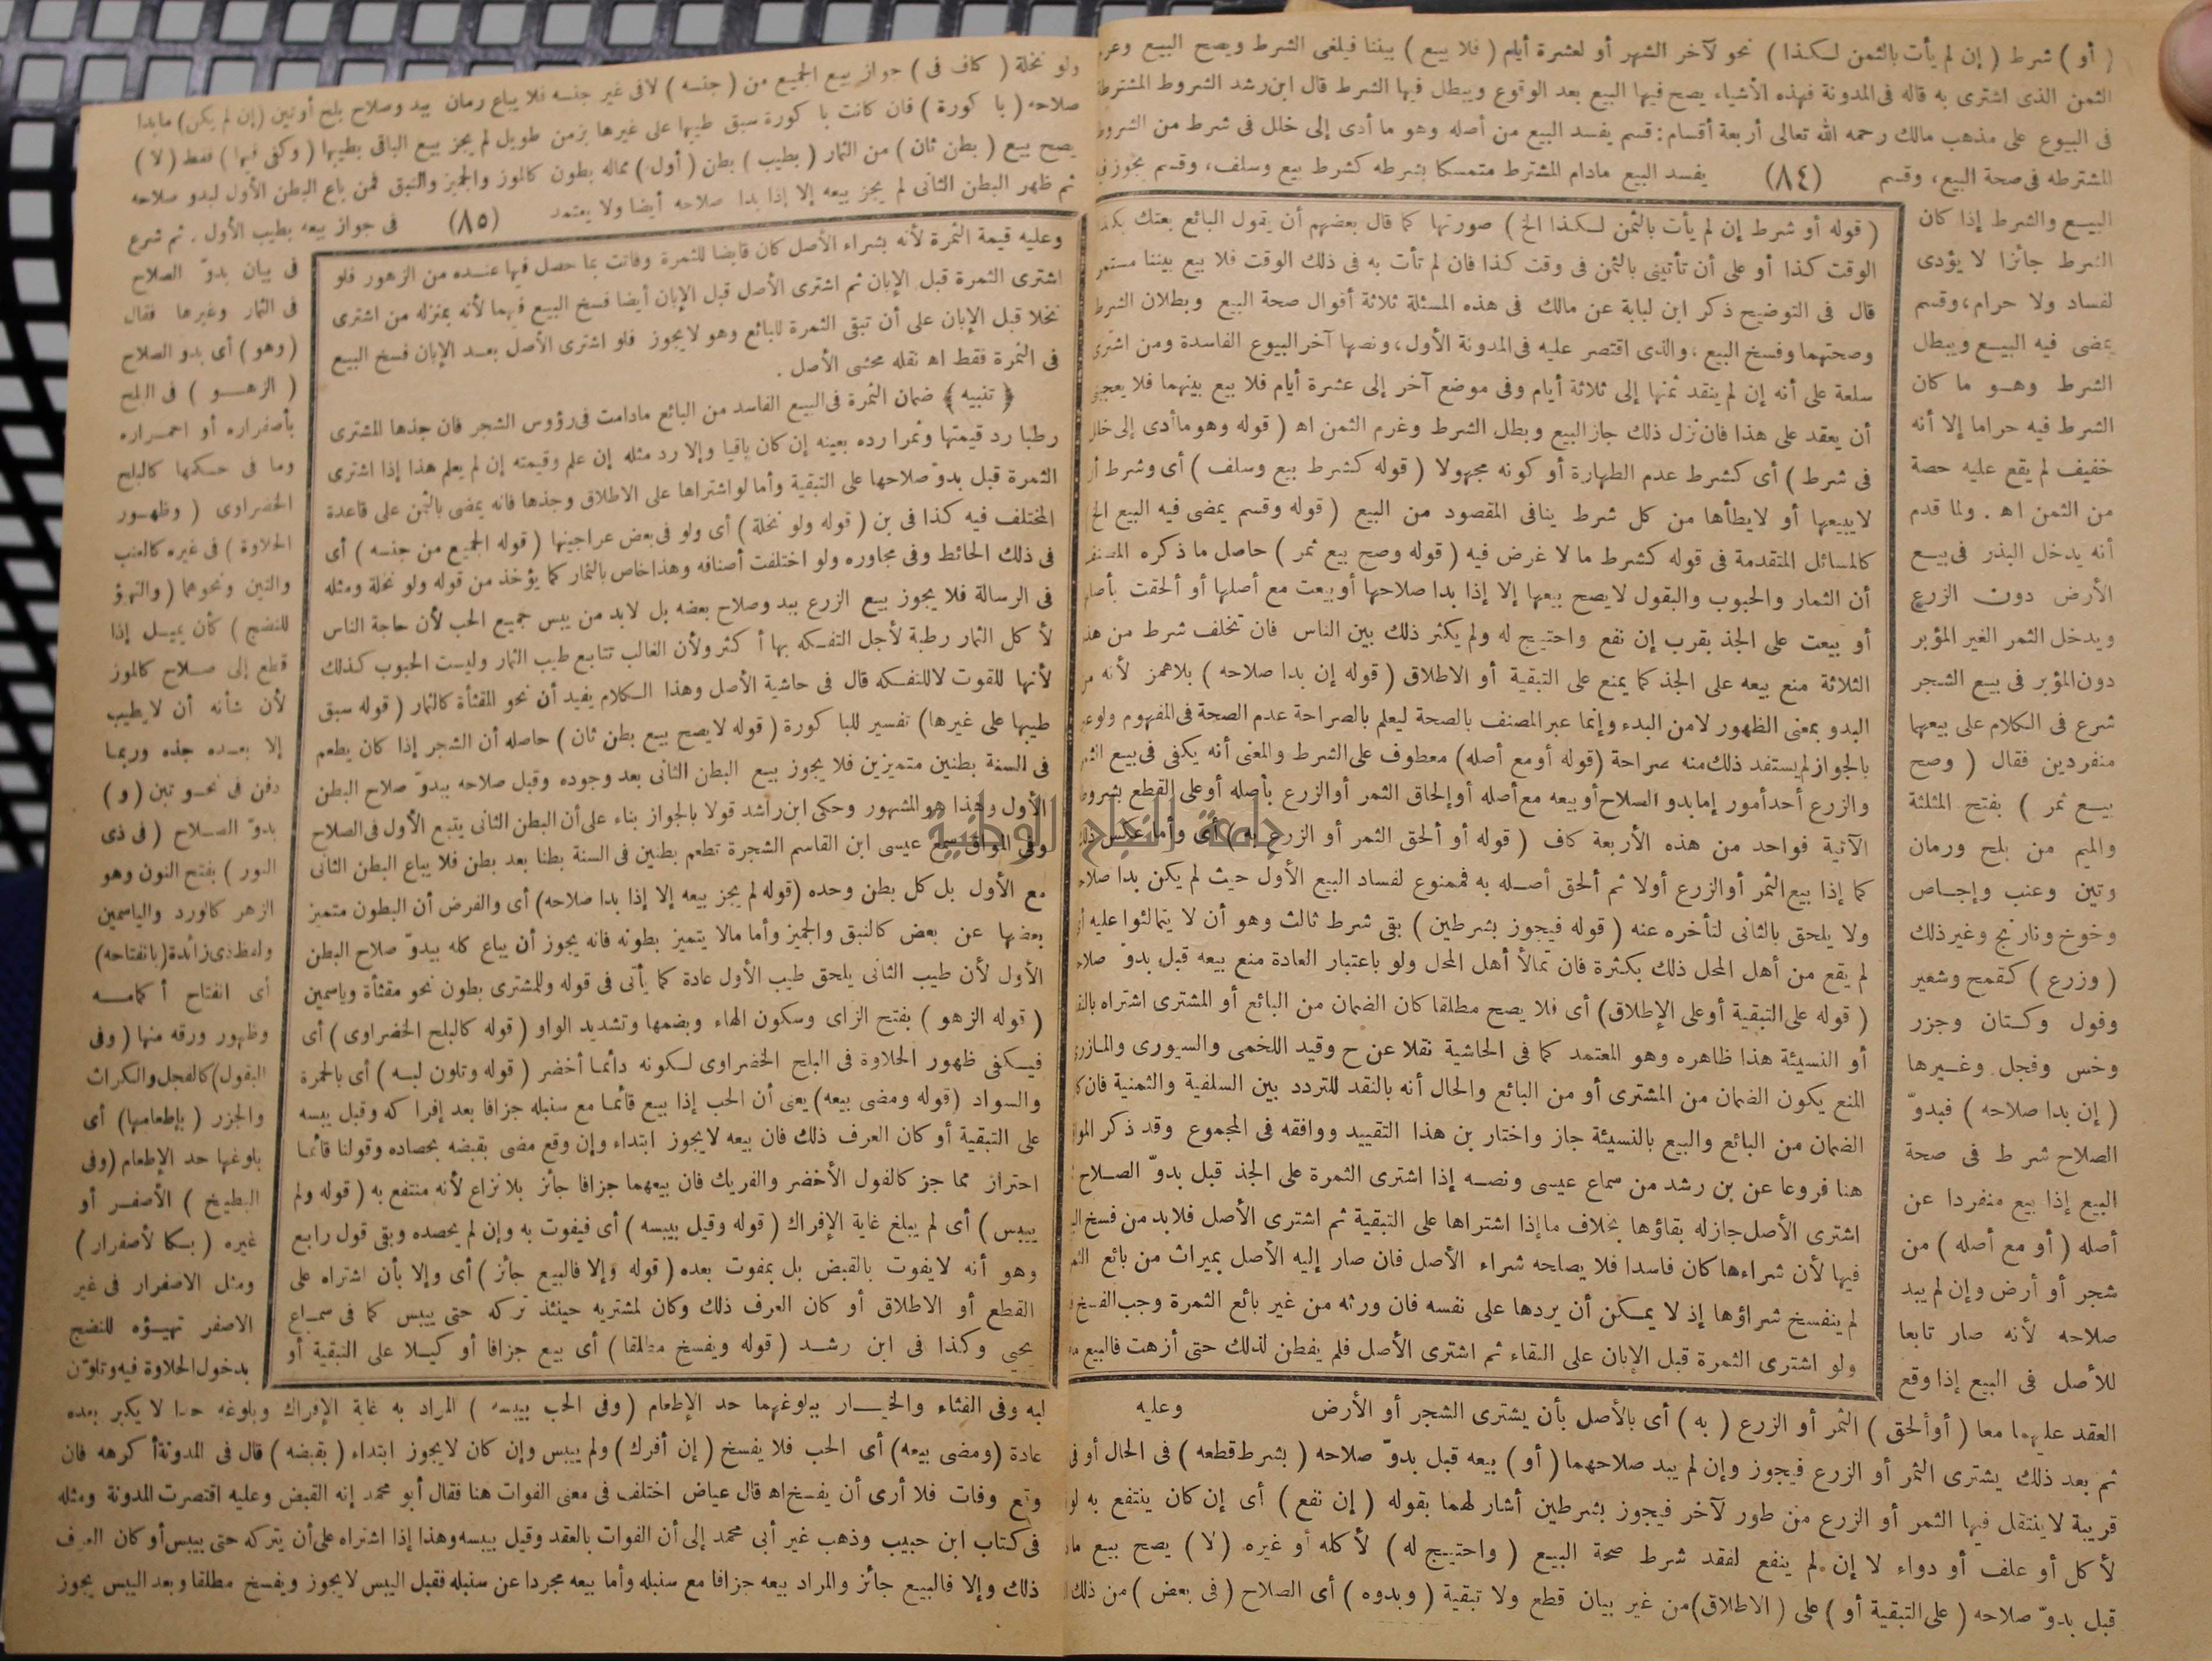 ( أو ) شرط ( إن لم يأت بالثمن لكذا ) نحو لآخر الشهر أو لعشرة أيام ( فلا بيع ) بيننا فيلغى الشرط ويصح البيع
الثمن الذى اشترى به قاله فى المدونة فهذه الأشياء يصح فيها البيع بعد الوقوع ويبطل فيها الشرط قال ابن رشد الشروط المشترطة
فى البيوع على مذهب مالك رحمه الله تعالى أربعة أقسام : قسم يفسد البيع من أصله وهو ما أدى إلى خلل فى شرط من الشروط
المشترطه فى صحة البيع ، وقسم (٨٤) يفسد البيع مادام المشترط متمسكا بشرطه كشرط بيع وسلف ، وقسم يجوز فيه
البيع والشرط إذا كان
الشرط جائزا لا يؤدى
لفساد ولا حرام ، وقسم
يمضى فيه البيع ويبطل
الشرط وهو ما كان
الشرط فيه حراما إلا أنه
خفيف لم يقع عليه حصة
من الثمن اه . ولما قدم
أنه يدخل البذر فى بيع
الأرض دون الزرع
ويدخل الثمر الغير المؤبر
دون المؤبر فى بيع الشجر
شرع فى الكلام على بيعهما
منفردين فقال ( وصح
بيع ثمر ) بفتح المثلثة
والميم من بلح ورمان
وتين وعنب وإجاص
وخوخ ونارنج وغير ذلك
( وزرع ) كقمح وشعير
وفول وكتان وجزر
وخس وفجل وغيرها
( إن بدا صلاحه ) فبدوّ
الصلاح شرط فى صحة
البيع إذا بيع منفردا عن
أصله ( أو مع أصله ) من
شجر أو أرض وإن لم يبد
صلاحه لأنه صار تابعا
للأصل فى البيع إذا وقع
( قوله أو شرط إن لم يأت بالثمن لكذا الخ ) صورتها كما قال بعضهم أن يقول البائع بعتك بكذا
الوقت كذا أو على أن تأتينى بالثمن فى وقت كذا فان لم تأت به فى ذلك الوقت فلا بيع بيننا مستمر
قال فى التوضيح ذكر ابن لبابة عن مالك فى هذه المسئلة ثلاثة أقوال صحة البيع وبطلان الشرط
وصحتهما وفسخ البيع ، والذى اقتصر عليه فى المدونة الأول ، ونصها آخر البيوع الفاسدة ومن اشترى
سلعة على أنه إن لم ينقد ثمنها إلى ثلاثة أيام وفى موضع آخر إلى عشرة أيام فلا بيع بينهما فلا يعجبنى
أن يعقد على هذا فان نزل ذلك جاز البيع وبطل الشرط وغرم الثمن اه ( قوله وهو ما أدى إلى خلل
فى شرط ) أى كشرط عدم الطهارة أو كونه مجهولا ( قوله كشرط بيع وسلف ) أى وشرط أن
لا يبيعها أو لا يطأها من كل شرط ينافى المقصود من البيع ( قوله وقسم يمضى فيه البيع الخ
كالمسائل المتقدمة فى قوله كشرط ما لا غرض فيه ( قوله وصح بيع ثمر ) حاصل ما ذكره المصنف
أن الثمار والحبوب والبقول لا يصح بيعها إلا إذا بدا صلاحها أو بيعت مع أصلها أو ألحقت بأصلها
أو بيعت على الجذ بقرب إن نفع واحتيج له ولم يكثر ذلك بين الناس فان تخلف شرط من هذه
الثلاثة منع بيعه على الجذ كما يمنع على التبقية أو الاطلاق ( قوله إن بدا صلاحه ) بلا همز لأنه من
البدو بمعنى الظهور لا من البدء وإنما عبر المصنف بالصحة ليعلم بالصراحة عدم الصحة فى المفهوم ولو عبر
بالجواز لم يستفد ذلك منه صراحة ( قوله أو مع أصله ) معطوف على الشرط والمعنى أنه يكفى فى بيع الثمر
والزرع أحد أمور إما بدو الصلاح أو بيعه مع أصله أو إلحاق الثمر أو الزرع بأصله أو على القطع بشروطه
الآتية فواحد من هذه الأربعة كاف ( قوله أو ألحق الثمر أو الزرع به ) أى وأما عكس ذلك
كما إذا بيع الثمر أو الزرع أولا ثم ألحق أصله به فممنوع لفساد البيع الأول حيث لم يكن بدا صلاحه
ولا يلحق بالثانى لتأخره عنه ( قوله فيجوز بشرطين ) بقى شرط ثالث وهو أن لا يتمالئوا عليه
لم يقع من أهل المحل ذلك بكثرة فان تمالأ أهل المحل ولو باعتبار العادة منع بيعه قبل بدوّ صلاحه
( قوله على التبقية أو على الإطلاق ) أى فلا يصح مطلقا كان الضمان من البائع أو المشترى اشتراه بالنقد
أو النسيئة هذا ظاهره وهو المعتمد كما فى الحاشية نقلا عن ح وقيد اللخمى والسيورى والمازرى
المنع يكون الضمان من المشترى أو من البائع والحال أنه بالنقد للتردد بين السلفية والثمنية فان كان
الضمان من البائع والبيع بالنسيئة جاز واختار بن هذا التقييد ووافقه فى المجموع وقد ذكر المواق
هنا فروعا عن بن رشد من سماع عيسى ونصه إذا اشترى الثمرة على الجذ قبل بدوّ الصلاح
اشترى الأصل جاز له بقاؤها بخلاف ما إذا اشتراها على التبقية ثم اشترى الأصل فلا بد من فسخ البيع
فيها لأن شراءها كان فاسدا فلا يصلحه شراء الأصل فان صار إليه الأصل بميراث من بائع الثمرة
لم ينفسخ شراؤها إذ لا يمكن أن يردها على نفسه فان ورثه من غير بائع الثمرة وجب الفسخ
ولو اشترى الثمرة قبل الإبان على البقاء ثم اشترى الأصل فلم يفطن لذلك حتى أزهت فالبيع
وعليه
العقد عليهما معا ( أو ألحق ) الثمر أو الزرع ( به ) أى بالأصل بأن يشترى الشجر أو الأرض
ثم بعد ذلك يشترى الثمر أو الزرع فيجوز وإن لم يبد صلاحهما ( أو ) بيعه قبل بدوّ صلاحه ( بشرط قطعه ) فى الحال أو فى
قريبة لا ينتقل فيها الثمر أو الزرع من طور لآخر فيجوز بشرطين أشار لهما بقوله ( إن نفع ) أى إن كان ينتفع به
لأكل أو علف أو دواء لا إن لم ينفع لفقد شرط صحة البيع ( واحتيج له ) لأكله أو غيره ( لا ) يصح بيع
قبل بدوّ صلاحه ( على التبقية أو ) على ( الاطلاق ) من غير بيان قطع ولا تبقية ( وبدوه ) أى الصلاح ( فى بعض ) من ذلك
ولو نخلة ( كاف فى ) جواز بيع الجميع من ( جنسه ) لا فى غير جنسه فلا يباع رمان ببدو صلاح بلح أو تين ( إن لم يكن ) ما بدا
صلاحه ( باكورة ) فان كانت باكورة سبق طيبها على غيرها بزمن طويل لم يجز بيع الباقى بطيبها ( وكفى فيها ) فقط ( لا )
يصح بيع ( بطن ثان ) من الثمار ( بطيب ) بطن ( أول ) مما له بطون كالموز والجميز والنبق فمن باع البطن الأول لبدو صلاحه
ثم ظهر البطن الثانى لم يجز بيعه إلا إذا بدا صلاحه أيضا ولا يعتمد (٨٥) فى جواز بيعه بطيب الأول . ثم شرع
فى بيان بدوّ الصلاح
فى الثمار وغيرها فقال
( وهو ) أى بدو الصلاح
( الزهو ) فى البلح
بأصفراره أو احمراره
وما فى حكمها كالبلح
الخضراوى ( وظهور
الحلاوة ) فى غيره كالعنب
والتين ونحوهما ( والتهيؤ
للنضج ) كأن يميل إذا
قطع إلى صلاح كالموز
لأن شأنه أن لا يطيب
إلا بعده جذه وربما
دفن فى نحو تبن ( و )
بدوّ الصلاح ( فى ذى
النور ) بفتح النون وهو
الزهر كالورد والياسمين
ولفظ ذى زائدة ( بانفتاحه )
أى انفتاح أكمامه
وظهور ورقه منها ( وفى
البقول ) كالفجل والكراث
والجزر ( بإطعامها ) أى
بلوغها حد الإطعام ( وفى
البطيخ ) الأصفر أو
غيره ( بكالأصفرار )
ومثل الاصفرار فى غير
الاصفر تهيؤه للنضج
بدخول الحلاوة فيه وتلوّن
وعليه قيمة الثمرة لأنه بشراء الأصل كان قابضا للثمرة وفاتت بما حصل فيها عنده من الزهور فلو
اشترى الثمرة قبل الإبان ثم اشترى الأصل قبل الإبان أيضا فسخ البيع فيهما لأنه بمنزله من اشترى
نخلا قبل الإبان على أن تبقى الثمرة للبائع وهو لا يجوز فلو اشترى الأصل بعد الإبان فسخ البيع
فى الثمرة فقط اه نقله محشى الأصل .
﴿ تنبيه ﴾ ضمان الثمرة فى البيع الفاسد من البائع مادامت فى رؤوس الشجر فان جذها المشترى
رطبا رد قيمتها وثمرا رده بعينه إن كان باقيا وإلا رد مثله إن علم وقيمته إن لم يعلم هذا إذا اشترى
الثمرة قبل بدوّ صلاحها على التبقية وأما لو اشتراها على الاطلاق وجذها فانه يمضى بالثمن على قاعدة
المختلف فيه كذا فى بن ( قوله ولو نخلة ) أى ولو فى بعض عراجينها ( قوله الجميع من جنسه ) أى
فى ذلك الحائط وفى مجاوره ولو اختلفت أصنافه وهذا خاص بالثمار كما يؤخذ من قوله ولو نخلة ومثله
فى الرسالة فلا يجوز بيع الزرع ببدو صلاح بعضه بل لا بد من يبس جميع الحب لأن حاجة الناس
لأكل الثمار رطبة لأجل التفكه بها أكثر ولأن الغالب تتابع طيب الثمار وليست الحبوب كذلك
لأنها للقوت لا للتفكه قال فى حاشية الأصل وهذا الكلام يفيد أن نحو المقثأة كالثمار ( قوله سبق
طيبها على غيرها ) تفسير للباكورة ( قوله لا يصح بيع بطن ثان ) حاصله أن الشجر إذا كان يطعم
فى السنة بطنين متميزين فلا يجوز بيع البطن الثانى بعد وجوده وقبل صلاحه ببدوّ صلاح البطن
الأول وهذا هو المشهور وحكى ابن راشد قولا بالجواز بناء على أن البطن الثانى يتبع الأول فى الصلاح
وفى المواق سمع عيسى ابن القاسم الشجرة تطعم بطنين فى السنة بطنا بعد بطن فلا يباع البطن الثانى
مع الأول بل كل بطن وحده ( قوله لم يجز بيعه إلا إذا بدا صلاحه ) أى والفرض أن البطون متميز
بعضها عن بعض كالنبق والجميز وأما مالا يتميز بطونه فانه يجوز أن يباع كله ببدوّ صلاح البطن
الأول لأن طيب الثانى يلحق طيب الأول عادة كما يأتى فى قوله وللمشترى بطون نحو مقثأة وياسمين
( قوله الزهو ) بفتح الزاى وسكون الهاء وبضمها وتشديد الواو ( قوله كالبلح الخضراوى ) أى
فيكفى ظهور الحلاوة فى البلح الخضراوى لكونه دائما أخضر ( قوله وتلون لبه ) أى بالحمرة
والسواد ( قوله ومضى بيعه ) يعنى أن الحب إذا بيع قائما مع سنبله جزافا بعد إفراكه وقبل يبسه
على التبقية أو كان العرف ذلك فان بيعه لا يجوز ابتداء وإن وقع مضى بقبضه بحصاده وقولنا قائما
احتراز مما جز كالفول الأخضر والفريك فان بيعهما جزافا جائز بلا نزاع لأنه منتفع به ( قوله ولم
ييبس ) أى لم يبلغ غاية الإفراك ( قوله وقيل بيبسه ) أى فيفوت به وإن لم يحصده وبقى قول رابع
وهو أنه لا يفوت بالقبض بل بمفوت بعده ( قوله وإلا فالبيع جائز ) أى وإلا بأن اشتراه على
القطع أو الاطلاق أو كان العرف ذلك وكان لمشتريه حينئذ تركه حتى ييبس كما فى سماع
يحيى وكذا فى ابن رشد ( قوله ويفسخ مطلقا ) أى بيع جزافا أو كيلا على التبقية أو
لبه وفى القثاء والخيار ببلوغهما حد الإطعام ( وفى الحب بيبسه ) المراد به غاية الإفراك وبلوغه حدا لا يكبر بعده
عادة ( ومضى بيعه ) أى الحب فلا يفسخ ( إن أفرك ) ولم ييبس وإن كان لا يجوز ابتداء ( بقبضه ) قال فى المدونة أكرهه فان
وقع وفات فلا أرى أن يفسخ اه قال عياض اختلف فى معنى الفوات هنا فقال أبو محمد إنه القبض وعليه اقتصرت المدونة ومثله
فى كتاب ابن حبيب وذهب غير أبى محمد إلى أن الفوات بالعقد وقيل بيبسه وهذا إذا اشتراه على أن يتركه حتى ييبس أو كان العرف
ذلك وإلا فالبيع جائز والمراد بيعه جزافا مع سنبله وأما بيعه مجردا عن سنبله فقبل اليبس لا يجوز ويفسخ مطلقا وبعد اليبس يجوز
جامعة النجاح الوطنية